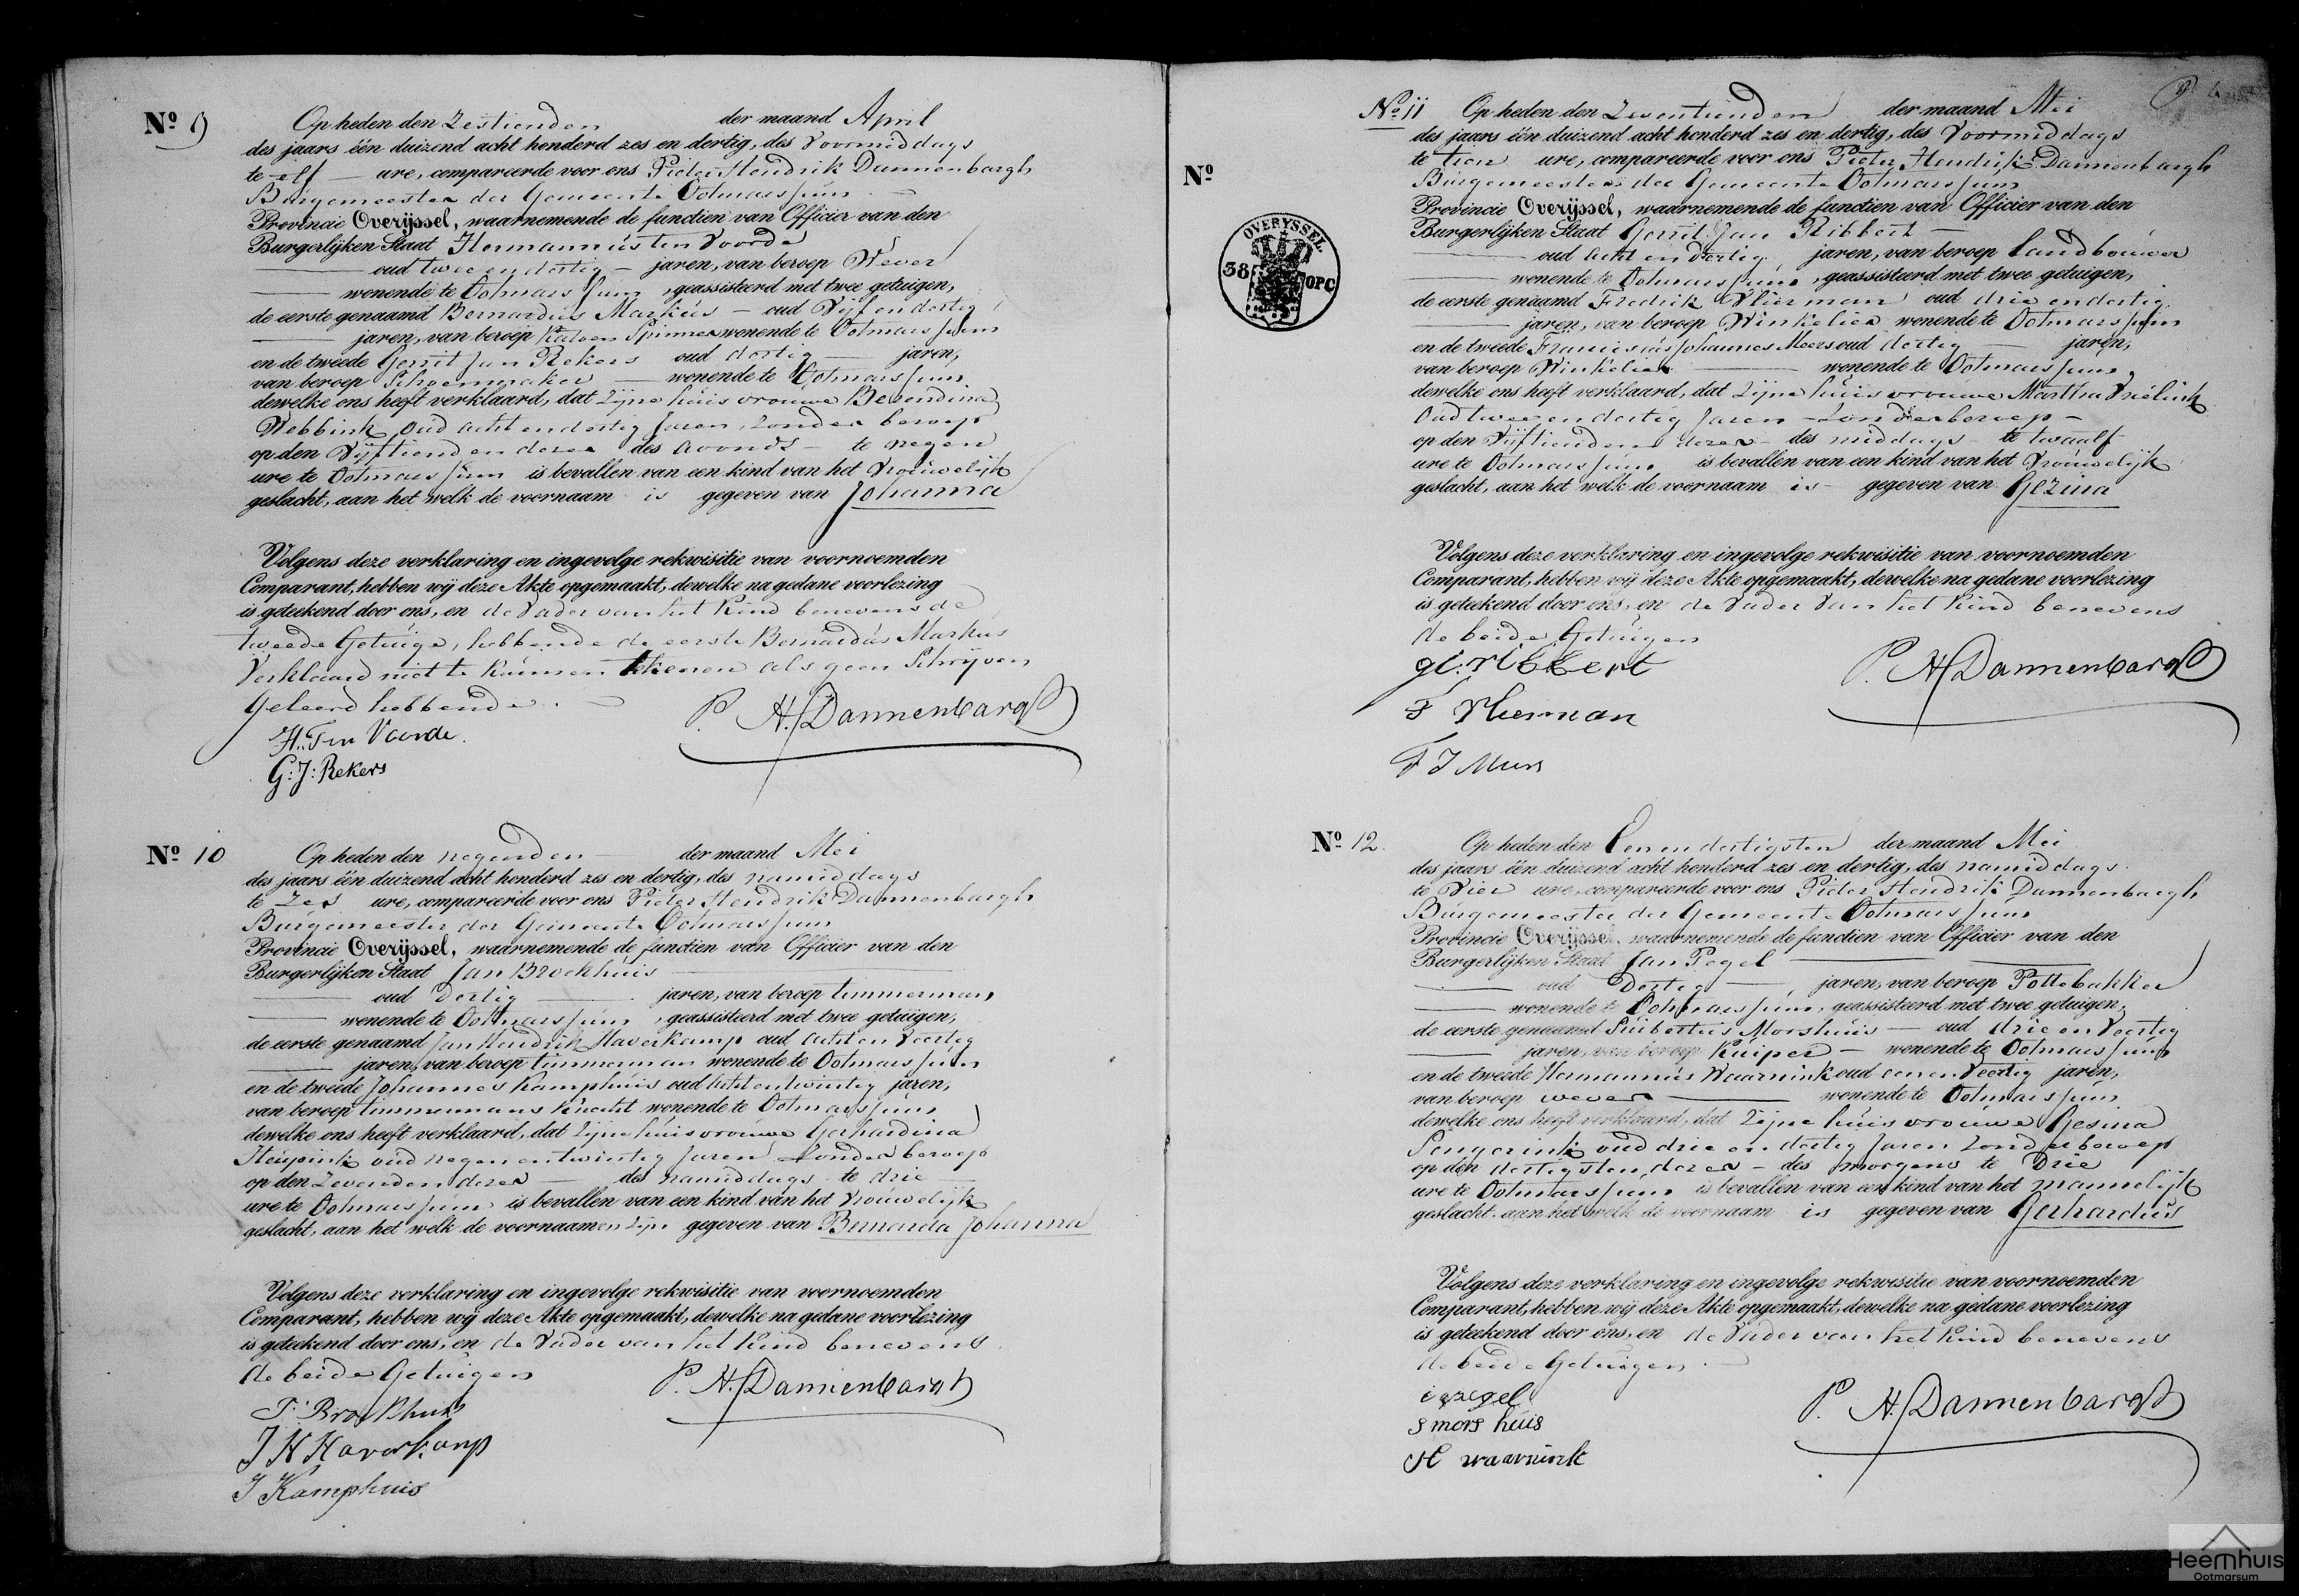 Nº 9
Op heden den Zestienden der maand April
des jaars één duizend acht honderd zes en dertig, des Voormiddags
te elf ure, compareerde voor ons Pieter Hendrik Dannenbargh
Burgemeester der Gemeente Ootmarssum
Provincie Overijssel, waarnemende de functien van Officier van den
Burgerlijken Staat Hermannus ten Voorde
oud twee en dertig jaren, van beroep Wever
wonende te Ootmarssum, geassisteerd met twee getuigen,
de eerste genaamd Bernardus Markus oud Vijf en dertig
jaren, van beroep Katoen Spinner wonende te Ootmarssum
en de tweede Gerrit Jan Rekers oud dertig jaren,
van beroep Schoenmaker wonende te Ootmarssum
dewelke ons heeft verklaard, dat Zijne huisvrouwe Berendina
Webbink oud acht en dertig Jaren, Zonder beroep
op den Vijftienden dezer des avonds te negen
ure te Ootmarssum is bevallen van een kind van het Vrouwelijk
geslacht, aan het welk de voornaam is gegeven van Johanna
Volgens deze verklaring en ingevolge rekwisitie van voornoemden
Comparant, hebben wij deze Akte opgemaakt, dewelke na gedane voorlezing
is geteekend door ons, en de Vader van het Kind benevens de
tweede Getuige, hebbende de eerste Bernardus Markus
Verklaard niet te kunnen tekenen als geen Schrijven
Geleerd hebbende.
P. H. Dannenbargh
H. Ten Voorde.
G: J: Rekers
Nº 10
Op heden den negenden der maand Mei
des jaars één duizend acht honderd zes en dertig, des namiddags
te Zes ure, compareerde voor ons Pieter Hendrik Dannenbargh
Burgemeester der Gemeente Ootmarssum
Provincie Overijssel, waarnemende de functien van Officier van den
Burgerlijken Staat Jan Brockhuis
oud Dertig jaren, van beroep timmerman
wonende te Ootmarssum, geassisteerd met twee getuigen,
de eerste genaamd Jan Hendrik Haverkamp oud acht en Veertig
jaren, van beroep timmerman wonende te Ootmarssum
en de tweede Johannes Kamphuis oud acht en twintig jaren,
van beroep timmermans knecht wonende te Ootmarssum
dewelke ons heeft verklaard, dat Zijne huisvrouwe Gerhardina
oud negen en twintig Jaren Zonder beroep
op den Zevenden dezer des namiddags te drie
ure te Ootmarssum is bevallen van een kind van het Vrouwelijk
geslacht, aan het welk de voornaamen Zijn gegeven van Bernarda Johanna
Volgens deze verklaring en ingevolge rekwisitie van voornoemden
Comparant, hebben wij deze Akte opgemaakt, dewelke na gedane voorlezing
is geteekend door ons, en de Vader van het Kind benevens
de beide Getuigen
P. H. Dannenbargh
J. Brockhuis
J H Haverkamp
J Kamphuis
Nº 11
Op heden den Zeventienden der maand Mei
des jaars één duizend acht honderd zes en dertig, des Voormiddags
te tien ure, compareerde voor ons Pieter Hendrik Dannenbargh
Burgemeester der Gemeente Ootmarssum
Nº
Provincie Overijssel, waarnemende de functien van Officier van den
Burgerlijken Staat Gerrit Jan Ribbert
oud acht en dertig jaren, van beroep Landbouwer
OVERYSSEL.
38 OPC
wonende te Ootmarssum, geassisteerd met twee getuigen,
de eerste genaamd Fredrik Vlierman oud drie en dertig
jaren, van beroep Winkelier wonende te Ootmarssum
en de tweede Franciscus Johannes Meers oud dertig jaren,
van beroep Winkelier wonende te Ootmarssum,
dewelke ons heeft verklaard, dat Zijne huisvrouwe Martha Vrielink
Oud twee en dertig Jaren Zonder beroep
op den Vijftienden dezer des middags te twaalf
ure te Ootmarssum is bevallen van een kind van het Vrouwelijk
geslacht, aan het welk de voornaam is gegeven van Gezina
Volgens deze verklaring en ingevolge rekwisitie van voornoemden
Comparant, hebben wij deze Akte opgemaakt, dewelke na gedane voorlezing
is geteekend door ons, en de Vader van het Kind benevens
de beide Getuigen
P. H. Dannenbargh
ribbert
F Vlierman
F J
Nº 12.
Op heden den Eenendertigsten der maand Mei
des jaars één duizend acht honderd zes en dertig, des namiddags
te Vier ure, compareerde voor ons Pieter Hendrik Dannenbargh
Burgemeester der Gemeente Ootmarssum
Provincie Overijssel, waarnemende de functien van Officier van den
Burgerlijken Staat Jan Pegel
oud Dertig jaren, van beroep Pottebakker
wonende te Ootmarssum, geassisteerd met twee getuigen,
de eerste genaamd Suibertus Morshuis oud drie en Veertig
jaren, van beroep Kuiper wonende te Ootmarssum
en de tweede Hermannus Waarnink oud een en Veertig jaren,
van beroep wever wonende te Ootmarssum
dewelke ons heeft verklaard, dat Zijne huisvrouwe Gesina
oud drie en dertig Jaren Zonder beroep
op den dertigsten dezer des morgens te Drie
ure te Ootmarssum is bevallen van een kind van het mannelijk
geslacht, aan het welk de voornaam is gegeven van Gerhardus
Volgens deze verklaring en ingevolge rekwisitie van voornoemden
Comparant, hebben wij deze Akte opgemaakt, dewelke na gedane voorlezing
is geteekend door ons, en de Vader van het Kind benevens
de beide Getuigen.
P. H. Dannenbargh
s mors huis
H waarnink
Heemhuis
Ootmarsum